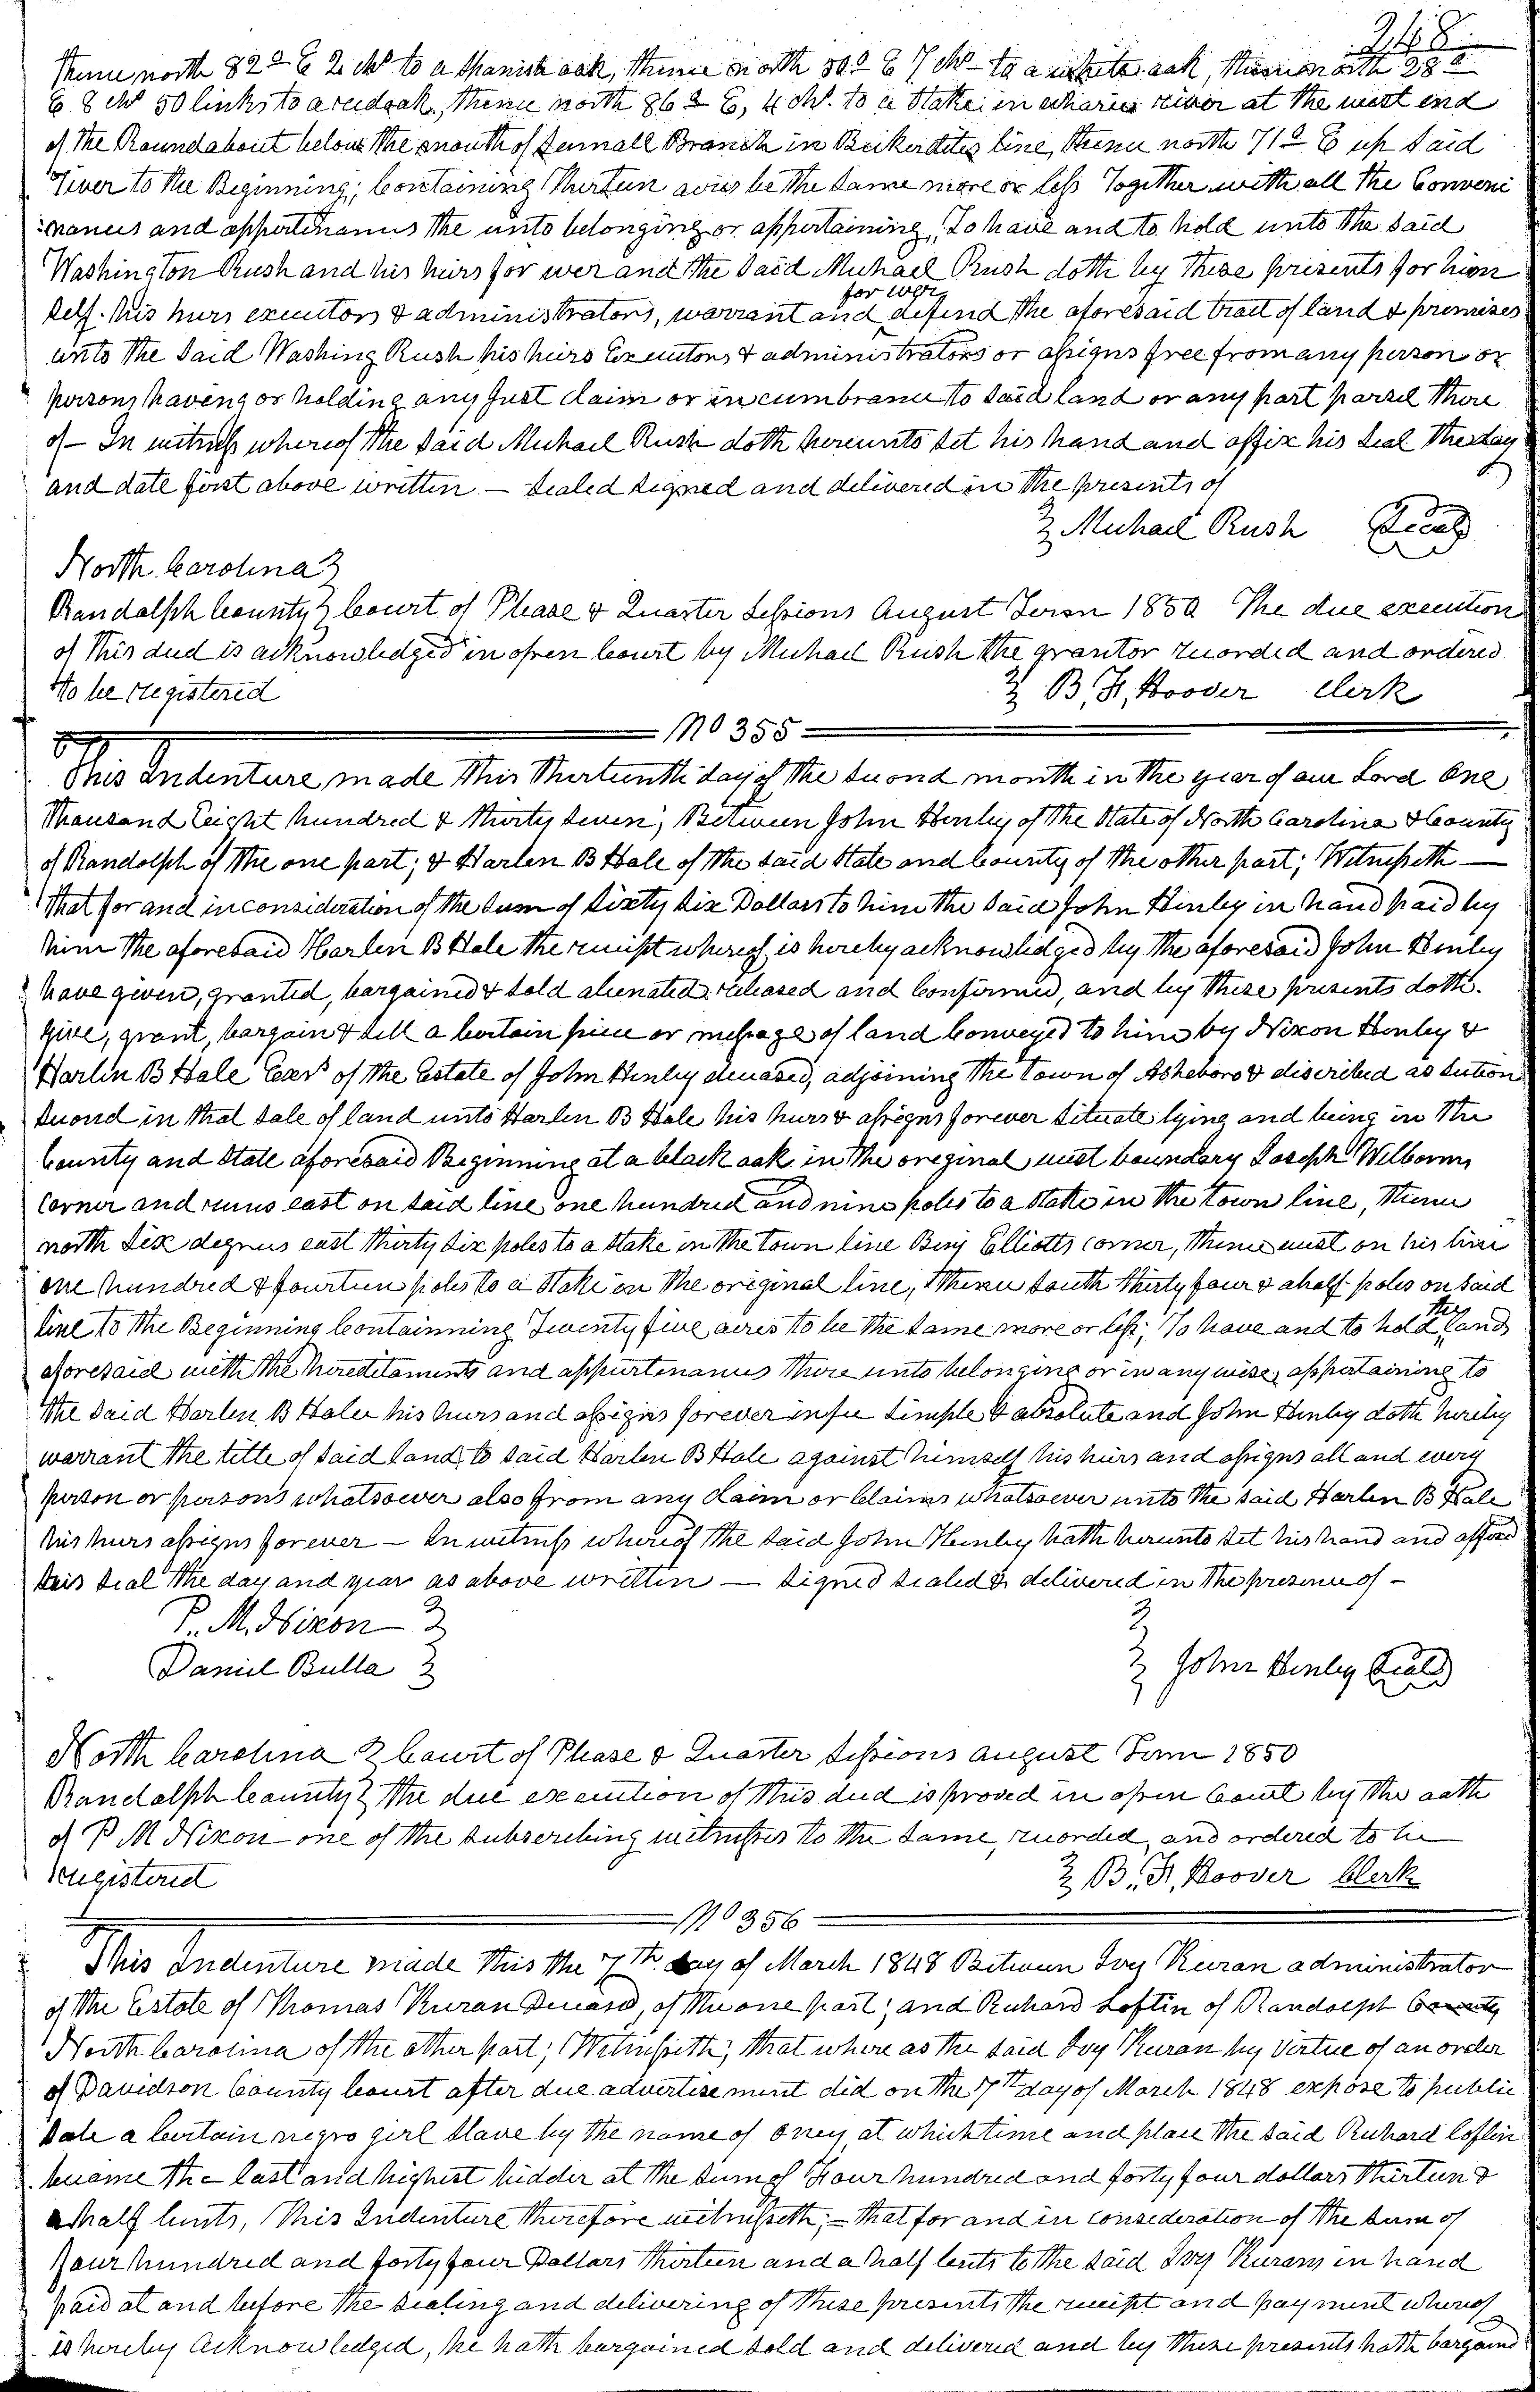 248
Thence north 82° E 2 chs to a Spanish oak, thence north 50° E 7 chs to a white oak, thence north 28°
E 8 chs 50 links to a red oak, thence north 86° E, 4 chs. to a Stake in echaries river at the west end
of the Roundabout below the mouth of Small Branch in line, thence north 71° E up said
River to the Beginning; Containing thirteen acres be the same more or less Together with all the Conveni
=nances and appertenances the unto belonging or appertaining, To have and to hold unto the said
Washington Rush and his heirs for ever and the said Michael Rush doth by these presents for him
self. his heirs executors & administrators, warrant and for ever defend the aforesaid tract of land & premises
unto the said Washing Rush his heirs Executors & administrators or assigns free from any person or
persons having or holding any just claim or incumbrance to said land or any part parsel there
of — In witness whereof the said Michael Rush doth hereunto set his hand and affix his seal the day
and date first above written. — Sealed signed and delivered in the presents of
Michael Rush Seal
North Carolina
Randolph County Court of Please & Quarter Sessions August Term 1850 The due execution
of this deed is acknowledged in open Court by Michael Rush the grantor recorded and ordered
to be registered B. F. Hoover Clerk
No 355
This Indenture, made this thirteenth day of the second month in the year of our Lord One
Thousand Eeight hundred & thirty seven; Between John Henley of the State of North Carolina & County
of Randolph of the one part; & Harlen B Hale of the said State and County of the other part; Witnesseth —
That for and in consideration of the sum of sixty six Dollars to him the said John Henley in hand paid by
him the aforesaid Harlen B Hale the receipt whereof is hereby acknowledged by the aforesaid John Henley
have given, granted, bargained & sold alienated released and Confirmed, and by these presents doth.
give, grant, bargain & sell a Certain piece or message of land Conveyed to him by Nixon Henley &
Harlin B Hale Exrs of the Estate of John Henley deceased, adjoining the Town of Asheboro & discribed as section
second in that sale of land unto Harlen B Hale his heirs & assigns forever situate lying and being in the
County and State aforesaid Beginning at a black oak in the original west boundary Joseph Welborns
Corner and runs east on said line one hundred and nine poles to a Stake in the town line, thence
north six degrees east thirty six poles to a stake in the town line Binj Elliotts corner, thence west on his line
one hundred & fourteen poles to a Stake in the original line, thence south thirty four & a half poles on said
line to the Beginning Containning Twenty five acres to be the same more or less; To have and to hold the land
aforesaid with the hereditaments and appurtenances there unto belonging or in any wise, appertaining to
the said Harlen B Hale his heirs and assigns forever in fee simple & absolute and John Henley doth hereby
warrant the title of said land to said Harlen B Hale against himself his heirs and assigns all and every
person or persons whatsoever also from any claim or Claims whatsoever unto the said Harlen B Hale
his heirs assigns forever — In witness whereof the said John Henley hath hereunto set his hand and affixed
his seal the day and year as above written — Signed sealed & delivered in the presence of —
P. M. Nixon
Daniel Bulla John Henley Seal
North Carolina Court of Please & Quarter Sessions August Term 1850
Randolph County the due execution of this deed is proved in open Court by the oath
of P M Nixon one of the subscribing witnesses to the same, recorded, and ordered to be
registered B. F. Hoover Clerk
No 356
This Indenture made this the 7th day of March 1848 Between Ivy Kuran administrator
of the Estate of Thomas Kuran Deceased, of the one part; and Richard Loftin of Randolph County
North Carolina of the other part; Witnesseth; that where as the said Ivy Kuran by virtue of an order
of Davidson County Court after due advertisement did on the 7th day of March 1848 expose to public
Sale a Certain negro girl slave by the name of Oney, at which time and place the said Richard Loflin
became the last and highest bidder at the sum of Four hundred and forty four dollars thirteen &
a half Cents, This Indenture therefore witnesseth; — that for and in consideration of the sum of
Four hundred and forty four Dollars thirteen and a half Cents to the said Ivy Kuran in hand
paid at and before the sealing and delivering of these presents the receipt and payment whereof
is hereby acknowledged, he hath bargained sold and delivered and by these presents hath bargained